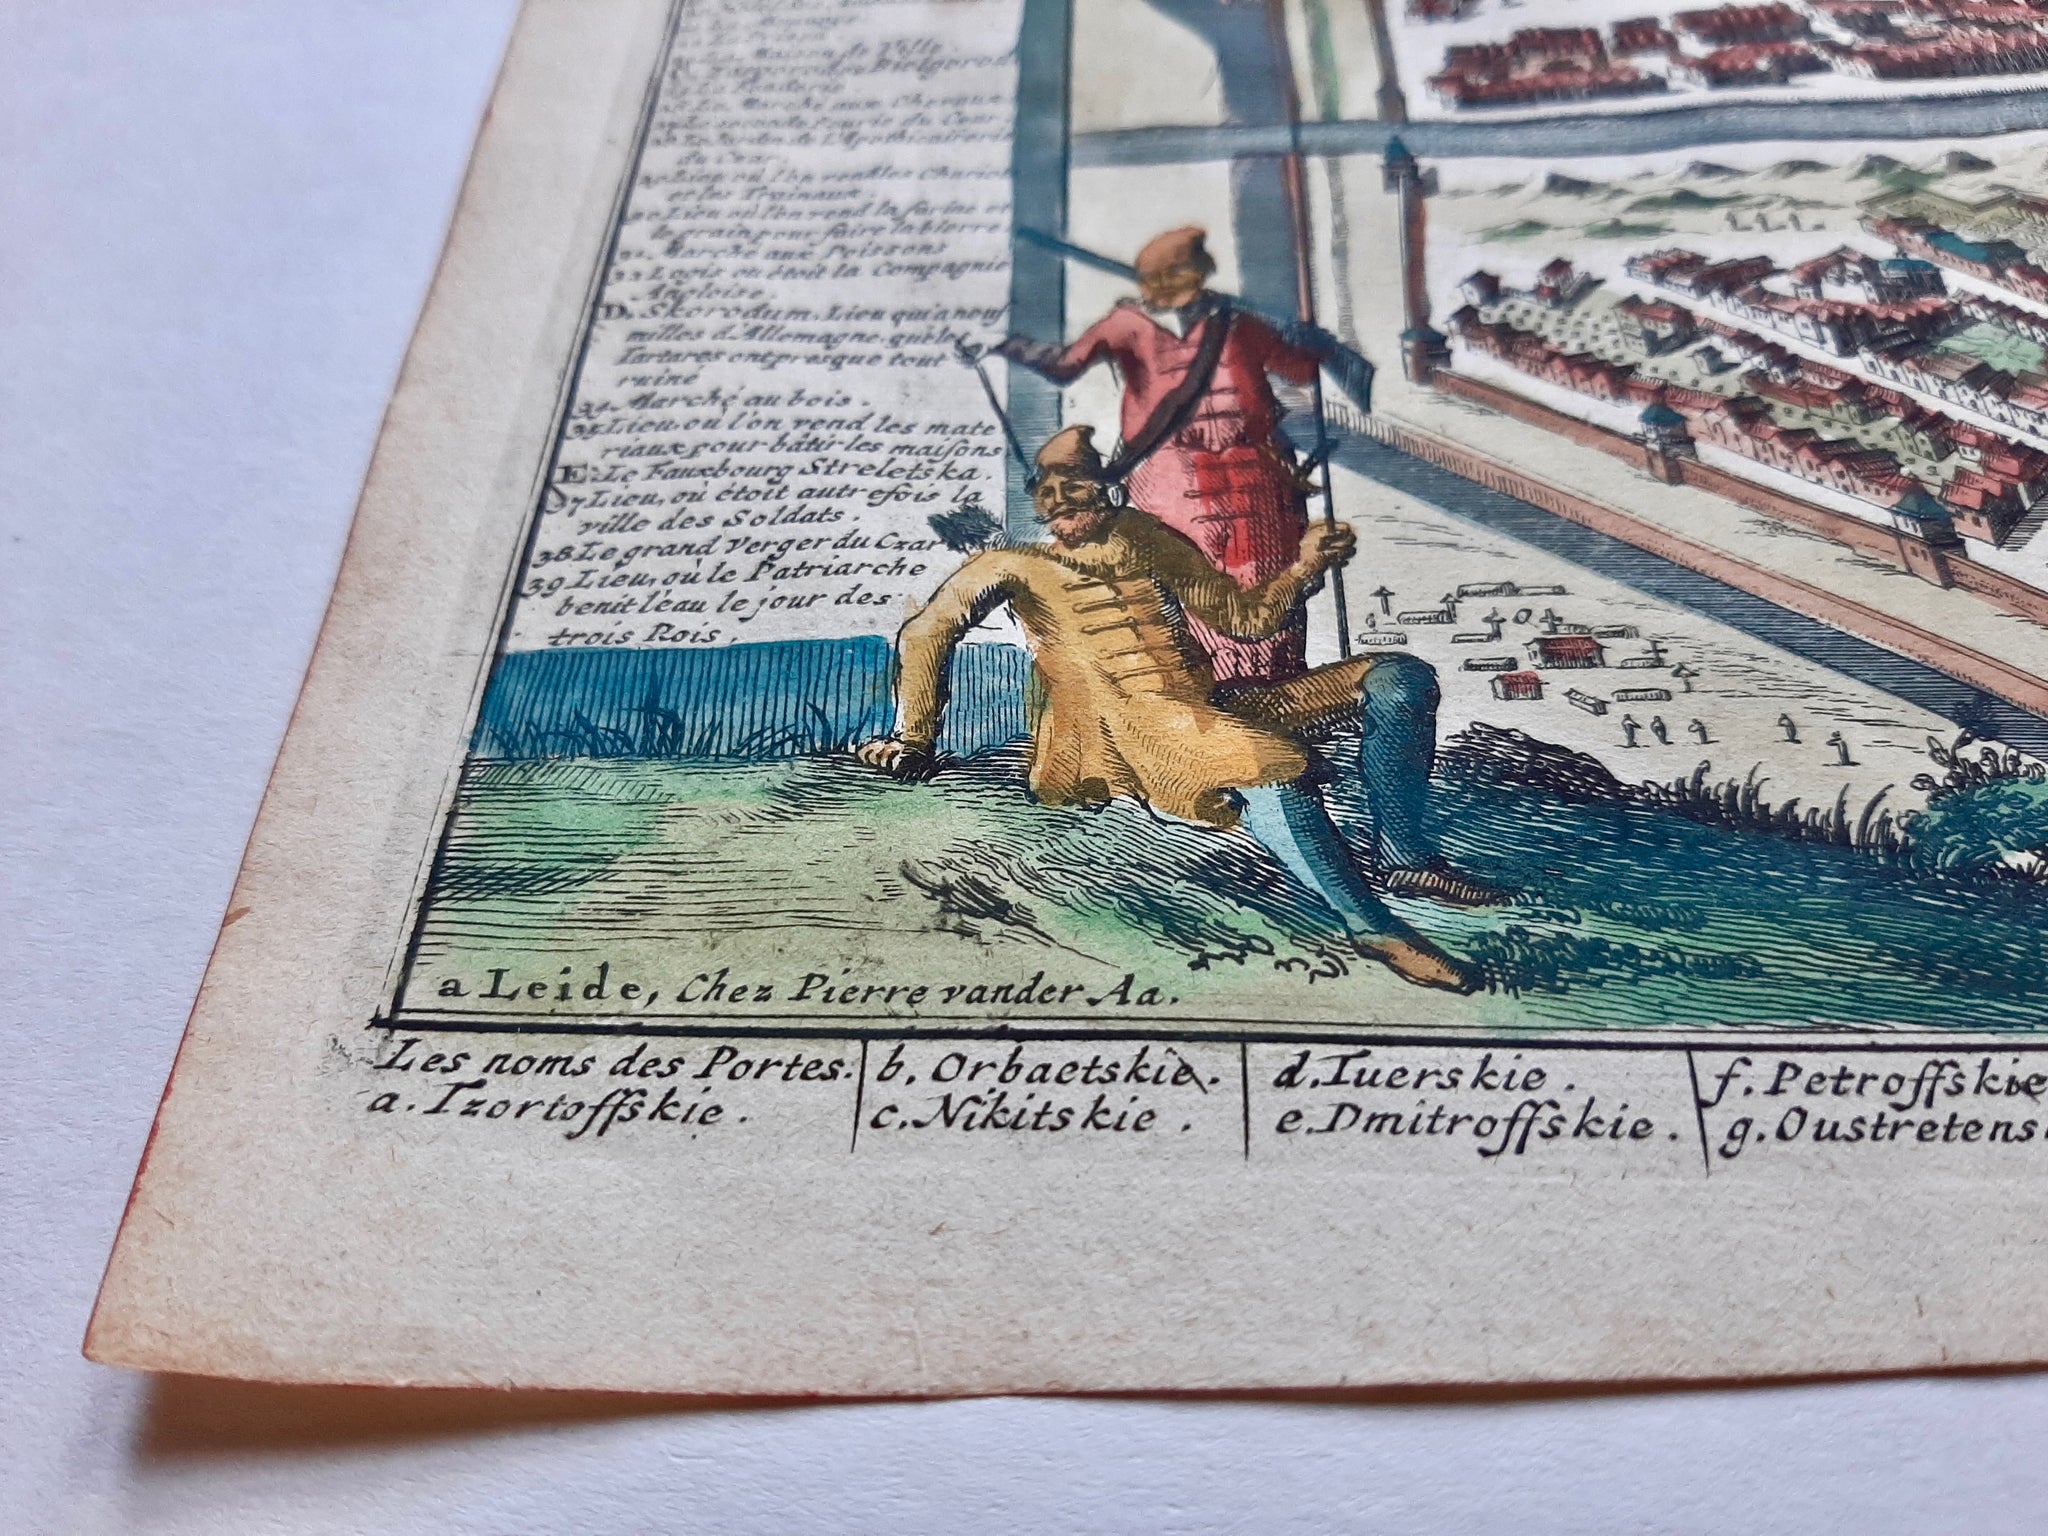 Maison de Ville.
La Fonderie
Le Marché aux Chevaux.
La seconde Ecurie du Czar
Le Jardin de L'Apothicairerie
du Czar.
Lieu où l'on vend les Chariots
et les Trainaux.
Lieu où l'on vend la farine et
le grain pour faire la bierre.
Marché aux Poissons
Logis ou étoit la Compagnie
Angloise.
D. Skorodum. Lieu qui a neuf
milles d'Allemagne, que les
Tartares ont presque tout
ruiné
34. Marché au bois.
35. Lieu, où l'on vend les mate
riaux pour bâtir les maisons
E. Le Fauxbourg Streletska.
37 Lieu, où étoit autrefois la
ville des Soldats.
38 Le grand Verger du Czar
39 Lieu, où le Patriarche
benit l'eau le jour des
trois Rois.
a Leide, Chez Pierre vander Aa.
Les noms des Portes.
a. Tzortoffskie.
b. Orbaetskie.
c. Nikitskie.
d. Tuerskie.
e. Dmitroffskie.
f. Petroffskie
g. Oustretens